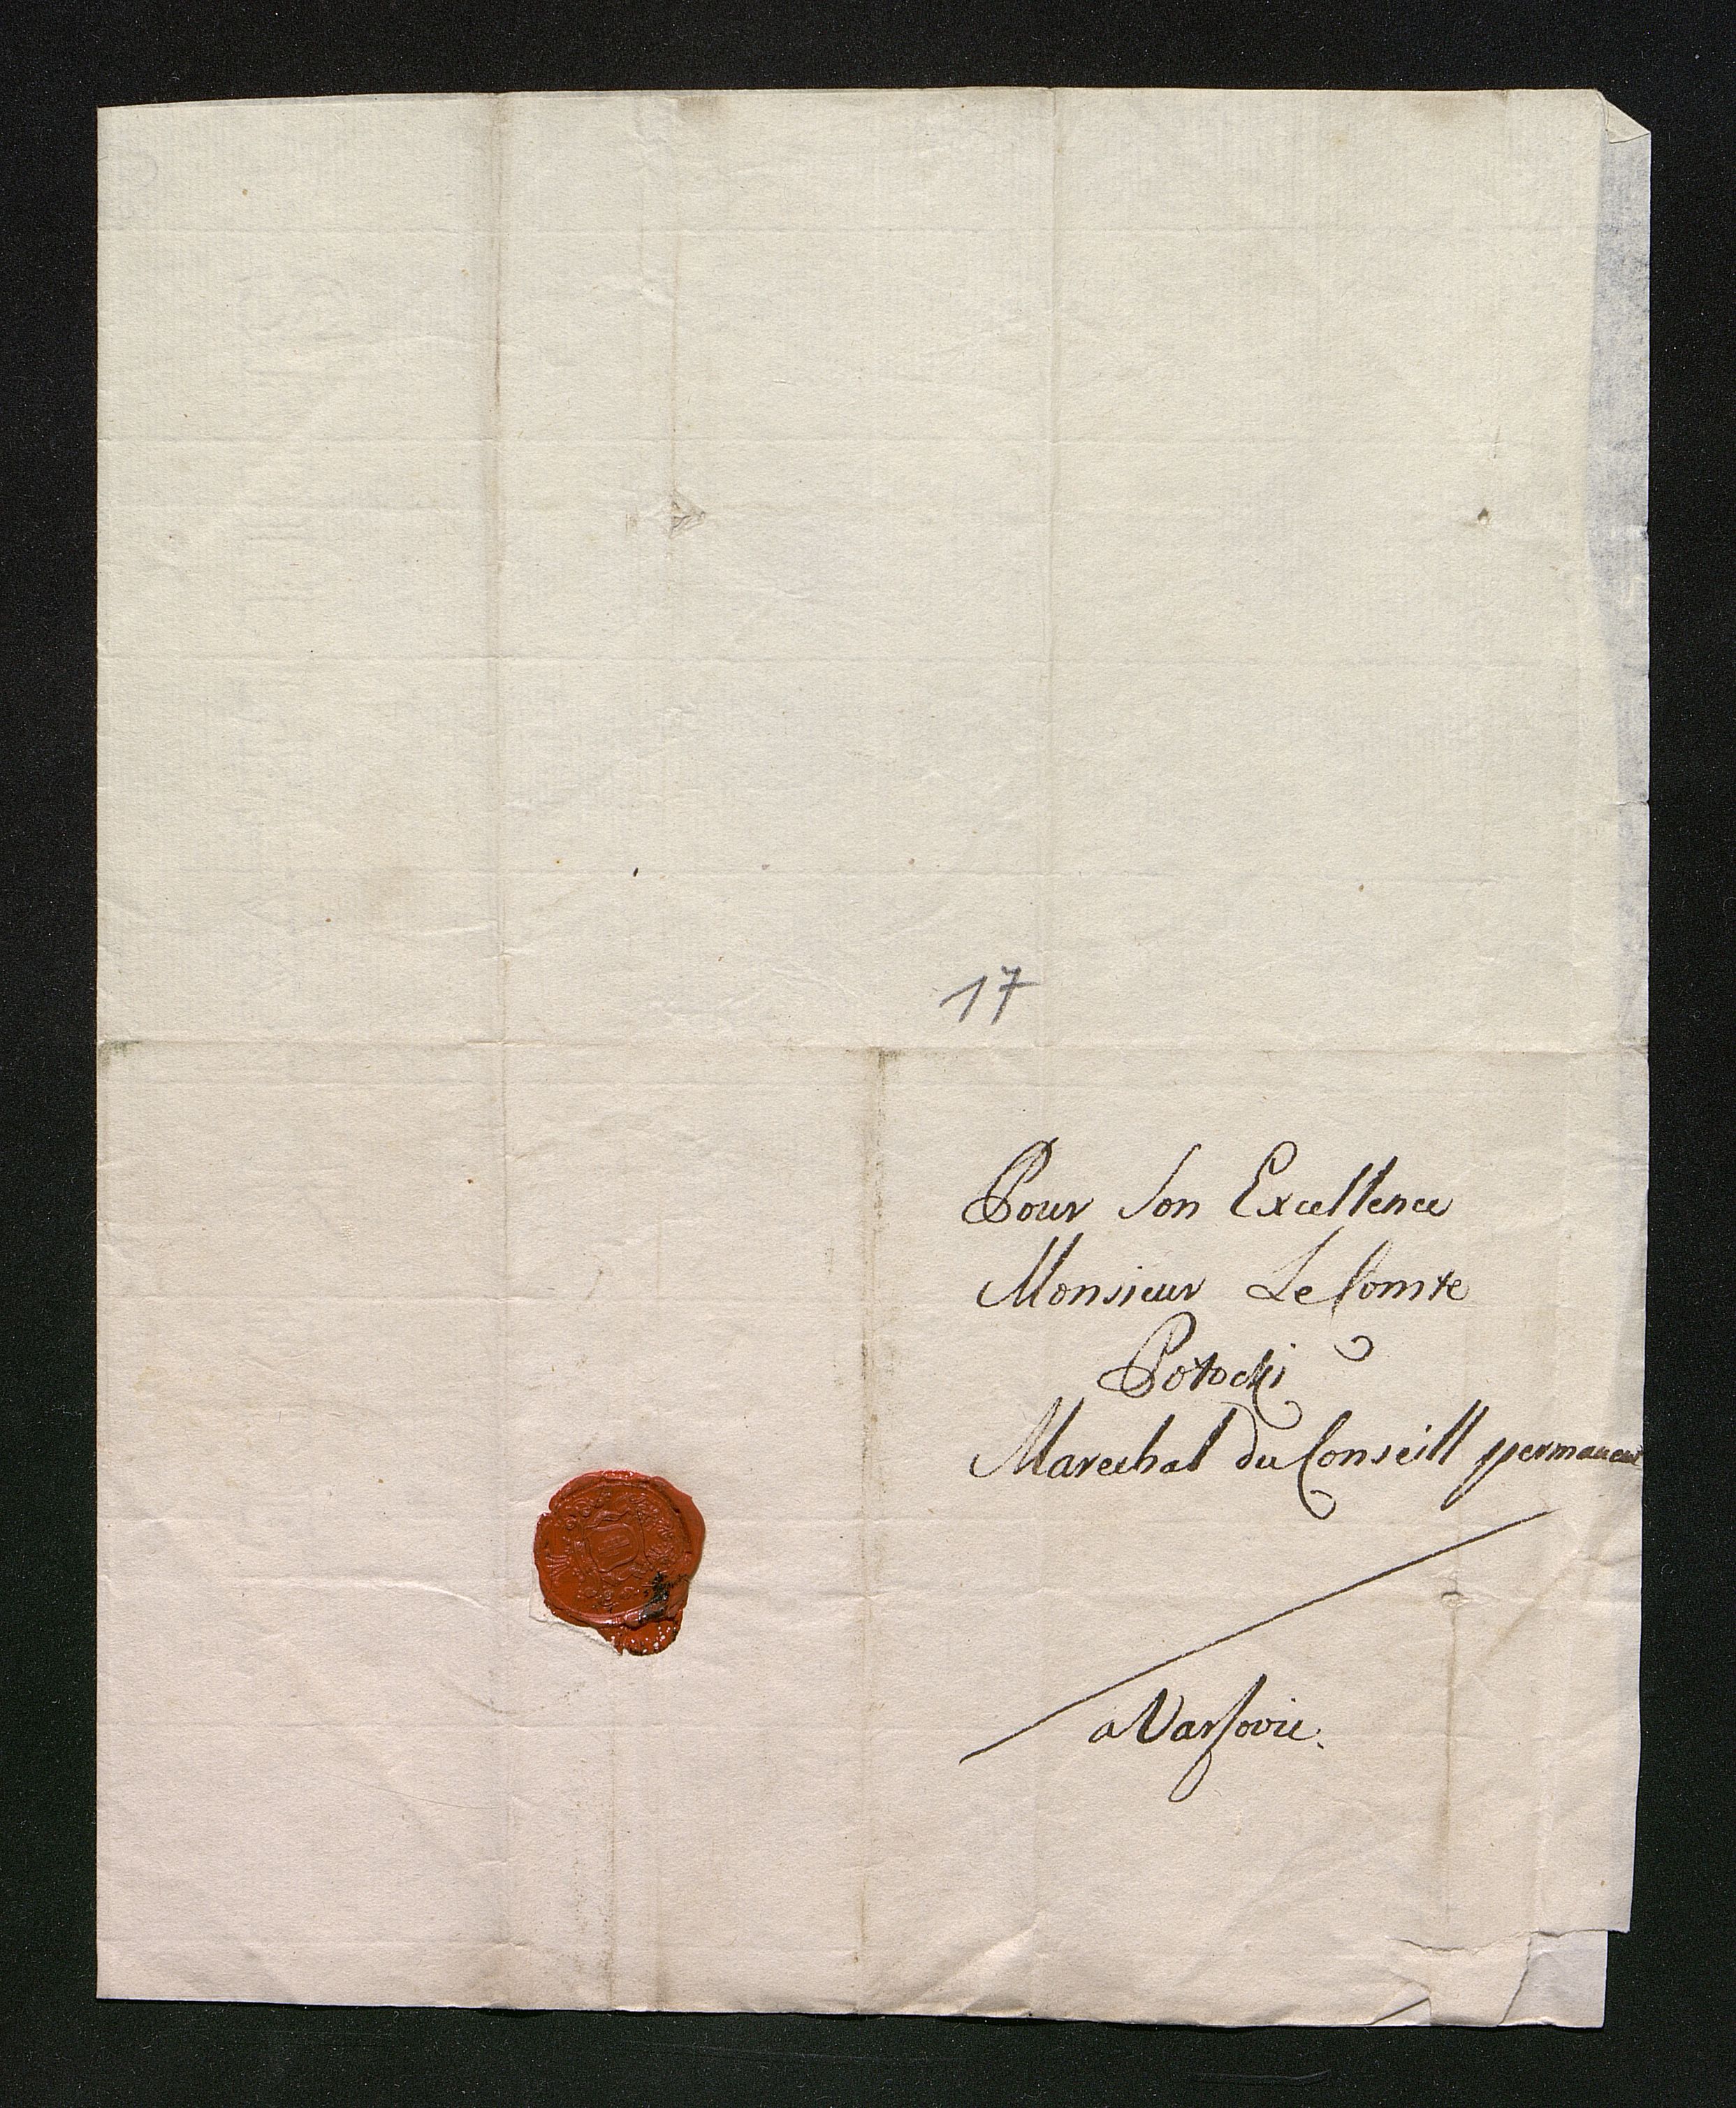 17
Pour Son Excellence
Monsieur Le Comte
Potocki
Marechal du Conseill permanent
a Varsovie.